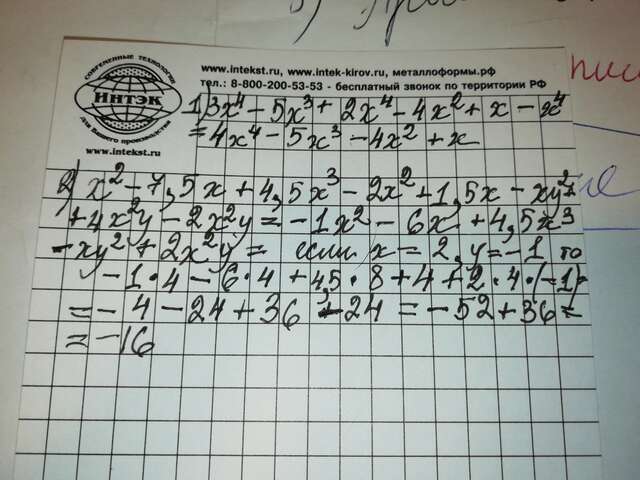 3) Ари
СОВРЕМЕННЫЕ ТЕХНОЛОГИИ
ИНТЭК
ДЛЯ ВАШЕГО ПРОИЗВОДСТВА
www.intekst.ru
www.intekst.ru, www.intek-kirov.ru, металлоформы.рф
тел.: 8-800-200-53-53 - бесплатный звонок по территории РФ
пис
1) 3x⁴ - 5x³ + 2x⁴ - 4x² + x - x⁴
= 4x⁴ - 5x³ - 4x² + x
2) x² - 7,5x + 4,5x³ - 2x² + 1,5x - xy² +
+ 4x²y - 2x²y = -1x² - 6x + 4,5x³
- xy² + 2x²y = если x = 2, y = -1 то
-1·4 - 6·4 + 4,5·8 + 4 + 2·4·(-1) =
= -4 - 24 + 36 - 24 = -52 + 36 =
= -16